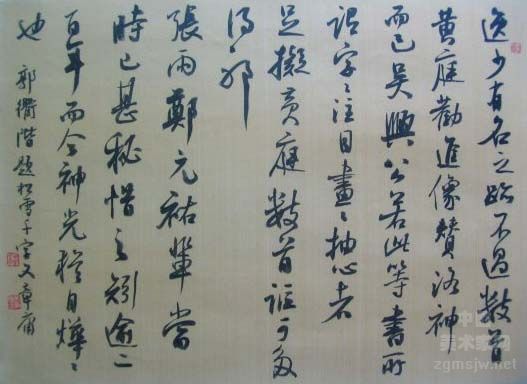 逸少有名之跡不過數首
黃庭勸進像贊洛神
而已吳興公若此等書所
謂字〻注目畫〻抽心者
足擬黃庭數首詎可多
得耶
張雨鄭元祐輩當
時已甚秘惜之矧逾二
百年而今神光猶自燁〻
也 郭衢階題松雪千字文 章庸
中国
美术家网
zgmsjw.net